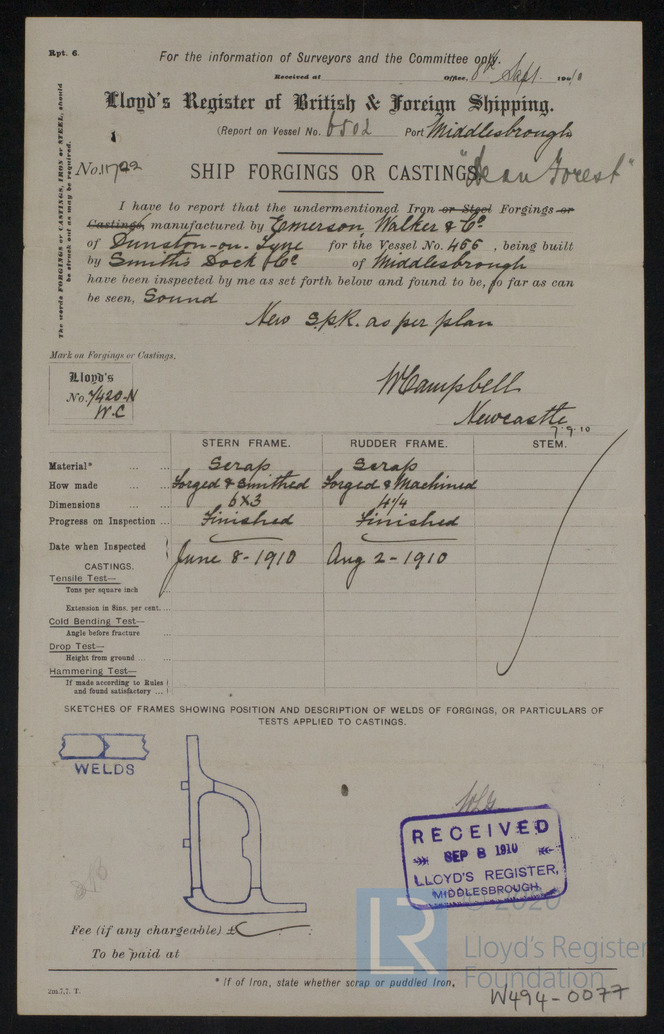 Rpt. 6.
For the information of Surveyors and the Committee only.
Received at Office, 8th Sept. 1910
Lloyd's Register of British & Foreign Shipping.
(Report on Vessel No. 6502 Port Middlesbrough
No. 11722
SHIP FORGINGS OR CASTINGS "Dean Forest"
The words FORGINGS or CASTINGS, IRON or STEEL, should be struck out as may be required.
I have to report that the undermentioned Iron or Steel Forgings or
Castings, manufactured by Emerson, Walker & Co
of Dunston-on-Tyne for the Vessel No. 466, being built
by Smith's Dock & Co of Middlesbrough
have been inspected by me as set forth below and found to be, so far as can
be seen, Sound
New spk. as per plan
Mark on Forgings or Castings.
Lloyd's
No. 7420-N
W.C
WCampbell
Newcastle
7.9.10
STERN FRAME. RUDDER FRAME. STEM.
Material* ... ... Scrap Scrap
How made ... ... Forged & Smithed Forged & Machined
Dimensions ... ... 6x3 4¼
Progress on Inspection ... Finished Finished
Date when Inspected June 8-1910 Aug 2-1910
CASTINGS.
Tensile Test—
Tons per square inch
Extension in 8ins. per cent. ...
Cold Bending Test—
Angle before fracture ...
Drop Test—
Height from ground ... ...
Hammering Test—
If made according to Rules
and found satisfactory ...
SKETCHES OF FRAMES SHOWING POSITION AND DESCRIPTION OF WELDS OF FORGINGS, OR PARTICULARS OF
TESTS APPLIED TO CASTINGS.
WELDS
RECEIVED
SEP 8 1910
LLOYD'S REGISTER,
MIDDLESBROUGH.
© 2020
LR Lloyd's Register
Foundation
Fee (if any chargeable) £ :
To be paid at
* If of Iron, state whether scrap or puddled Iron.
2m.7,7. T.
W494-0077